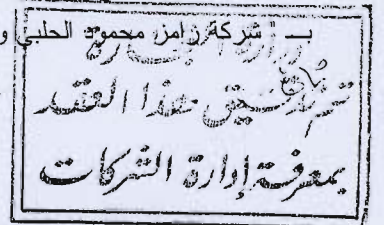 بـ " شركة رامز محمود الحلبي و
وزارة التجارة
تم توثيق هذا العقد
بمعرفة إدارة الشركات